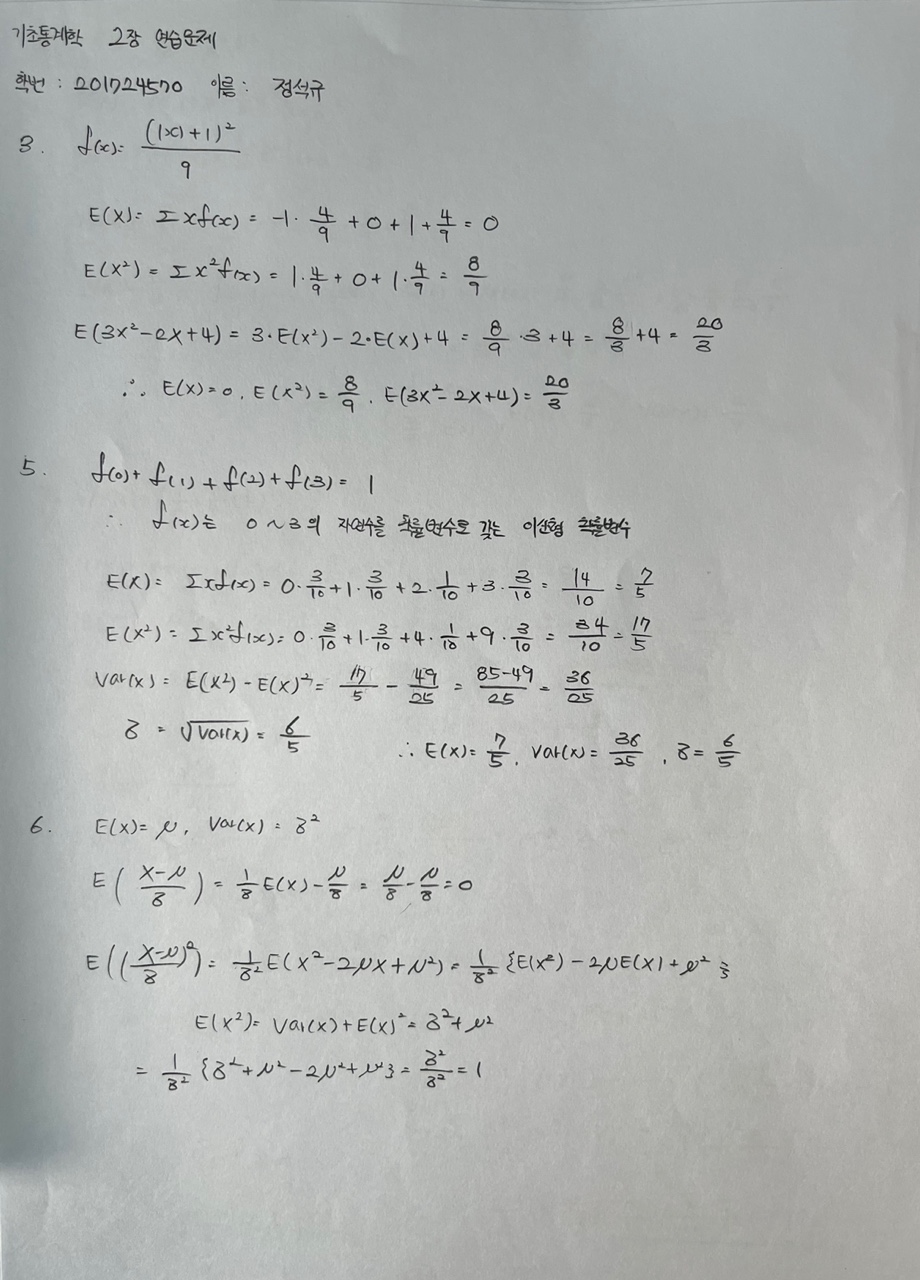 기초통계학 2장 연습문제
학번 : 201724570 이름 : 정석규
3. f(x)= (|x|+1)² / 9
E(X)= Σxf(x) = -1·4/9 + 0 + 1+4/9 = 0
E(X²) = Σx²f(x) = 1·4/9 + 0 + 1·4/9 = 8/9
E(3X²-2X+4) = 3·E(X²) - 2·E(X)+4 = 8/9 ·3+4 = 8/3 +4 = 20/3
∴ E(X)=0, E(X²)= 8/9, E(3X²-2X+4)= 20/3
5. f(0)+f(1)+f(2)+f(3)= 1
∴ f(x)는 0~3의 자연수를 확률변수로 갖는 이산형 확률변수
E(X)= Σxf(x) = 0·3/10+1·3/10+2·1/10+3·3/10 = 14/10 = 7/5
E(X²) = Σx²f(x)= 0·3/10+1·3/10+4·1/10+9·3/10 = 34/10 = 17/5
Var(X) = E(X²) - E(X)² = 17/5 - 49/25 = 85-49/25 = 36/25
σ = √Var(X) = 6/5 ∴ E(X)= 7/5, Var(X)= 36/25, σ= 6/5
6. E(X)= μ, Var(X) = σ²
E((X-μ)/σ) = 1/σ E(X) - μ/σ = μ/σ - μ/σ = 0
E(((X-μ)/σ)²)= 1/σ² E(X²-2μX+μ²) = 1/σ² {E(X²) - 2μE(X)+μ²}
E(X²)= Var(X)+E(X)² = σ²+μ²
= 1/σ² {σ²+μ²-2μ²+μ²} = σ²/σ² = 1